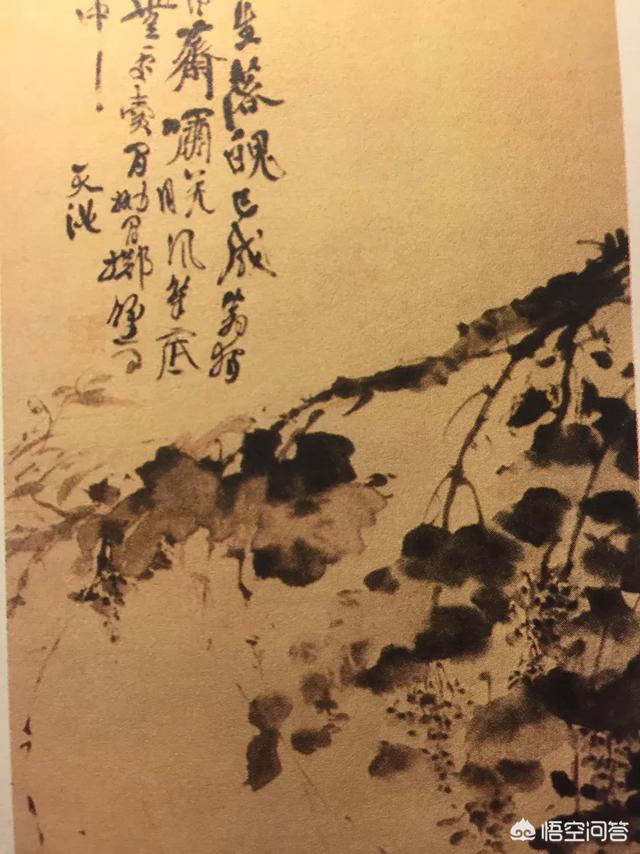 生落魄已成翁獨
齋嘯晚風筆底
無處賣閒拋閒擲野藤
中
天池
悟空问答